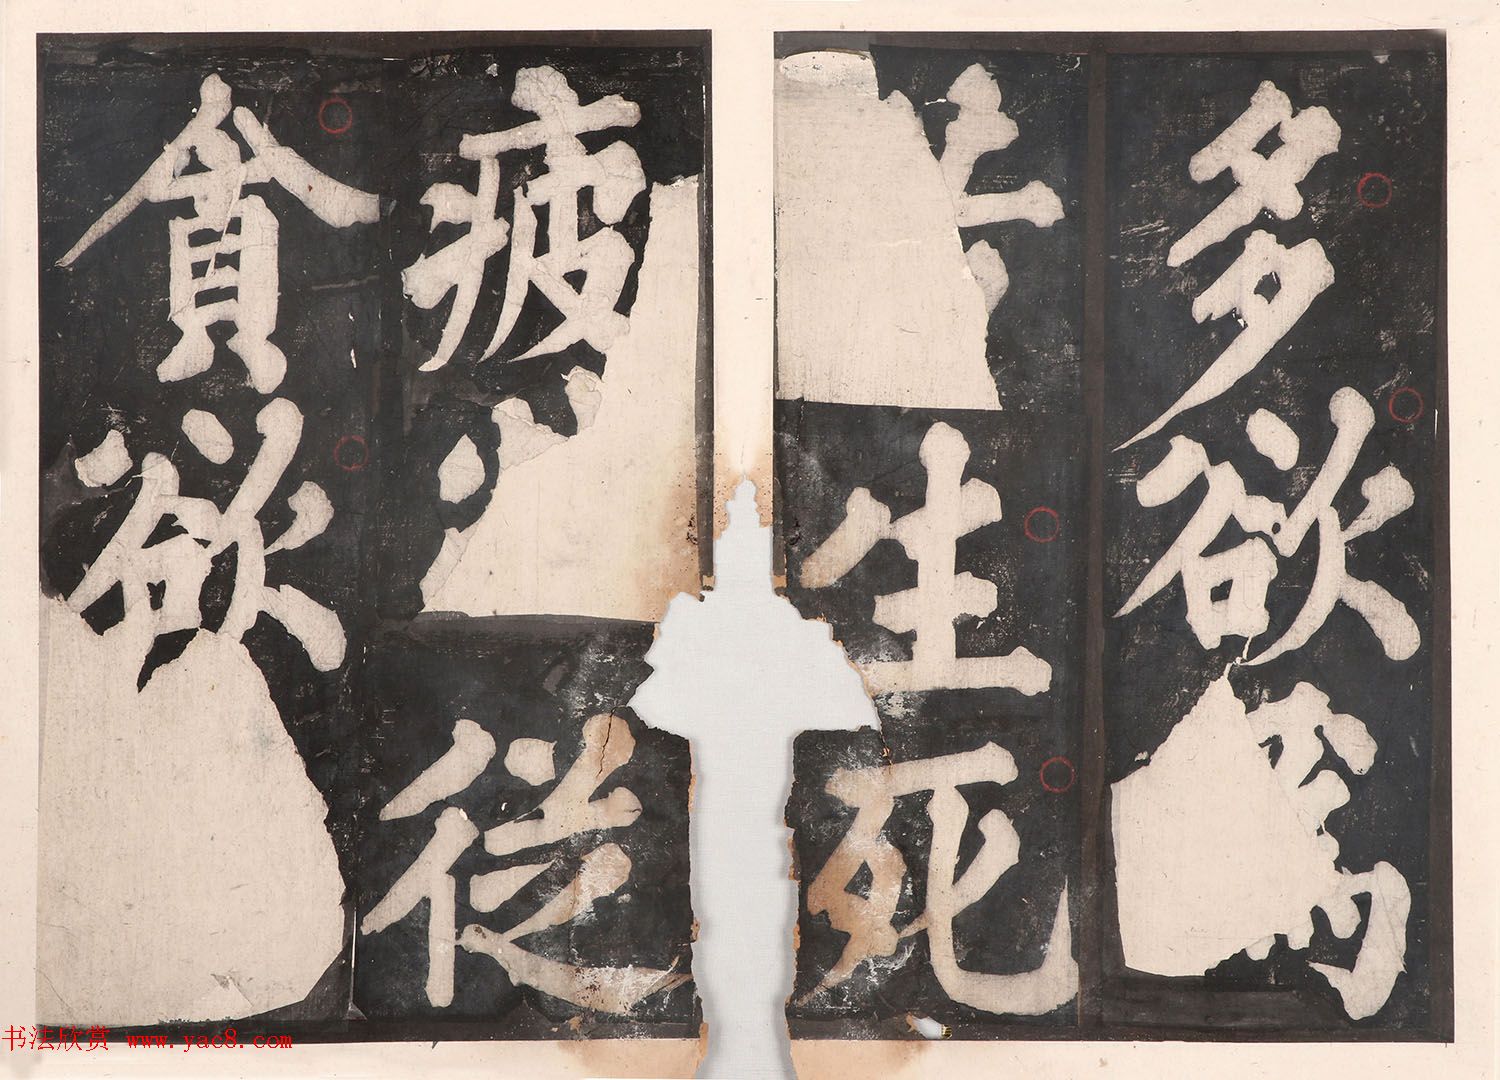 多欲為
苦生死
疲勞從
貪欲
书法欣赏 www.yac8.com